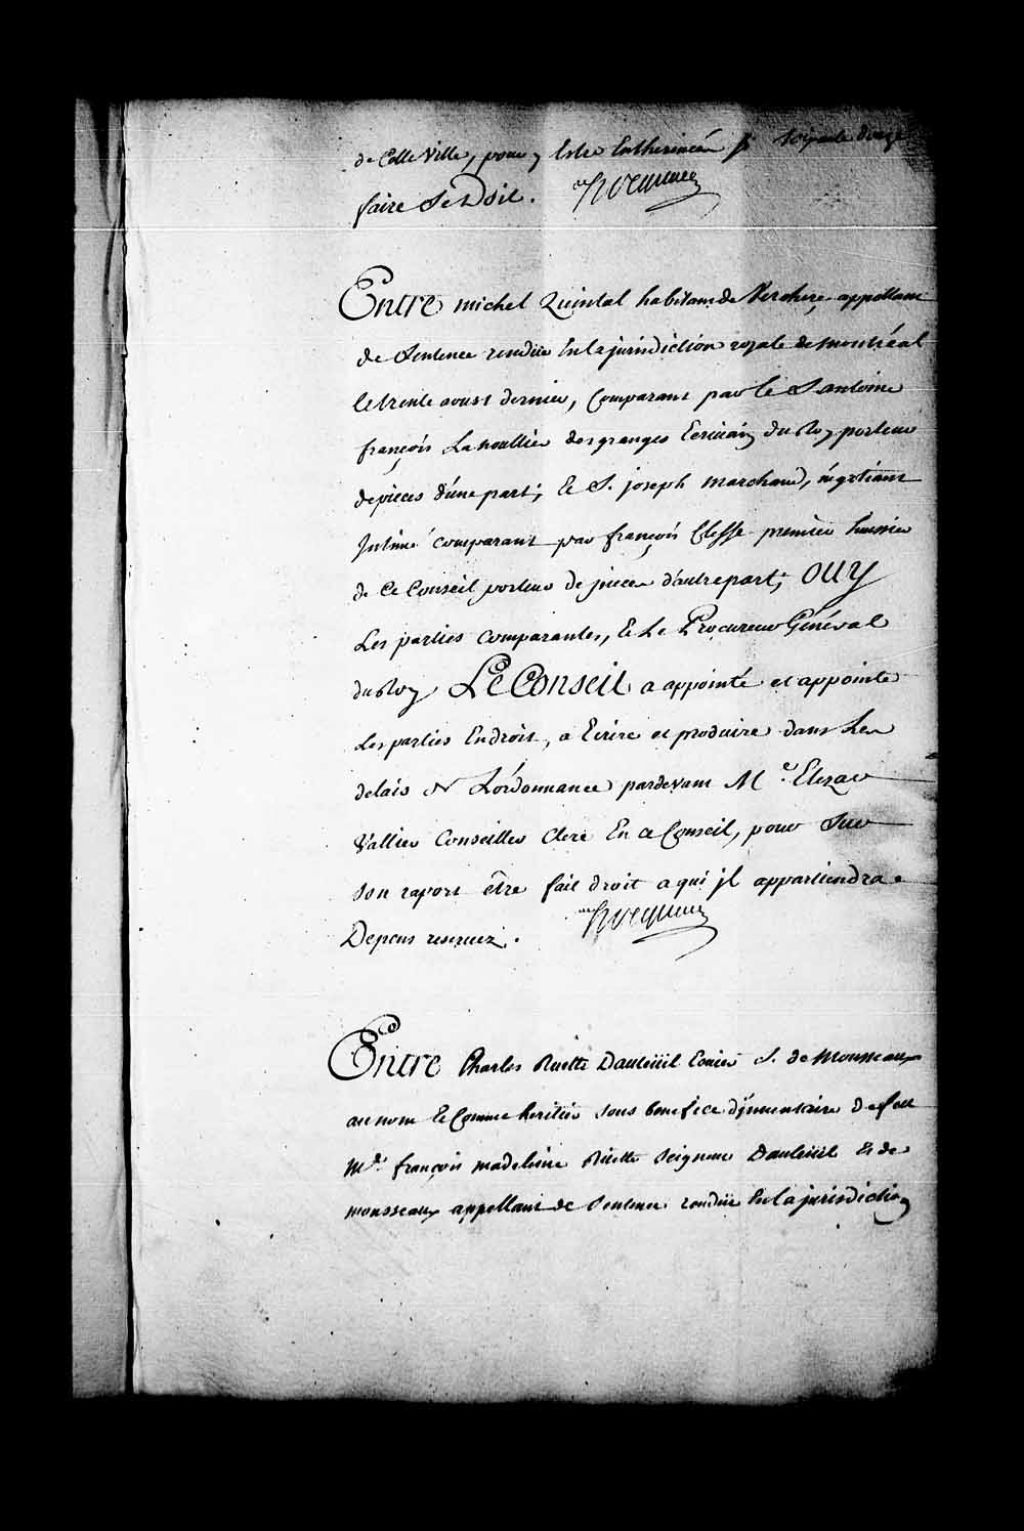 de Cette Ville, pour y Estre Entherinées si
faire Se Doit. Hocquart
Entre michel Quintal habitant de Verchere, appellant
de Sentence rendüe En la jurisdiction royale de montréal
le trente aoust dernier, Comparant par le S. antoine
françois Lanoullier des granges Ecrivain du Roy porteur
de pieces d'une part; Et S. joseph marchand, négotiant
Intimé comparant par françois Clesse premier huissier
de Ce Conseil porteur de pieces d'autre part; OUY
Les parties comparantes, Et Le Procureur Général
du Roy LE Conseil a appointé et appointe
Les parties En droit, a Ecrire et produire dans Les
delais de L'ordonnance pardevant Me. Elezar
Vallier Conseiller Clerc En ce Conseil, pour Sur
Son raport être fait droit a qui jl appartiendra.
Depens reservez. Hocquart
Entre Charles Ruette Dauteüil Ecuier S. de Monceaux
au nom Et Comme heritier sous benefice d'jnventaire de feu
Mr. françois madeleine Rüette Seigneur Dauteüil Et de
mousseaux appellant de Sentence rendüe En la jurisdiction